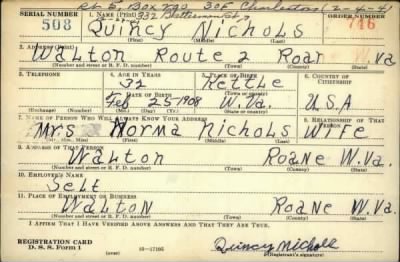 Rt 5, Box 290 30F Charleston (2-4-4)
SERIAL NUMBER 1. NAME (Print) ORDER NUMBER
508 Quincy Nichols 716
(First) (Middle) (Last)
2. ADDRESS (Print)
Walton Route 2 Roar Va
(Number and street or R. F. D. number) (Town) (County) (State)
3. TELEPHONE 4. AGE IN YEARS 5. PLACE OF BIRTH 6. COUNTRY OF CITIZENSHIP
32 Kettle
DATE OF BIRTH
Feb 25 1908 W.Va. U.S.A
(Exchange) (Number) (Mo.) (Day) (Yr.) (State or country)
7. NAME OF PERSON WHO WILL ALWAYS KNOW YOUR ADDRESS 8. RELATIONSHIP OF THAT PERSON
Mrs Norma Nichols Wife
(Mr., Mrs., Miss) (First) (Middle) (Last)
9. ADDRESS OF THAT PERSON
Walton Roane W.Va.
(Number and street or R. F. D. number) (Town) (County) (State)
10. EMPLOYER'S NAME
Self
11. PLACE OF EMPLOYMENT OR BUSINESS
Walton Roane W.Va.
(Number and street or R. F. D. number) (Town) (County) (State)
I AFFIRM THAT I HAVE VERIFIED ABOVE ANSWERS AND THAT THEY ARE TRUE.
REGISTRATION CARD
D. S. S. Form 1 16-17105 Quincy Nichols
(Registrant's signature)